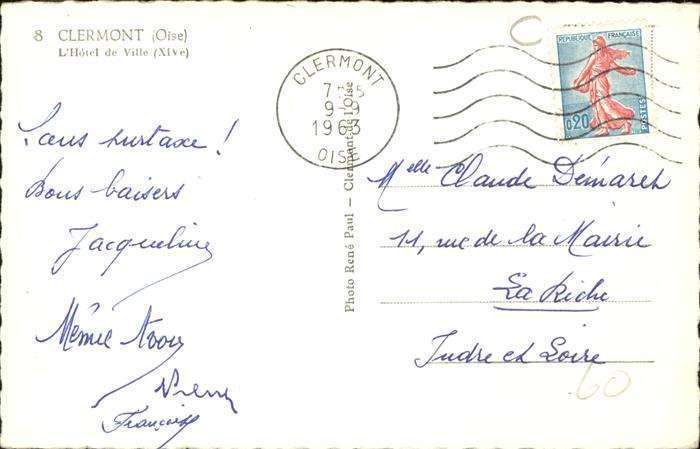 8 CLERMONT (Oise)
L'Hôtel de Ville (XIVe)
Sans surtaxe !
Bons baisers
Jacqueline
Mémée
Pierre
Francine
Photo René Paul — Clermont de l'Oise
CLERMONT
9-9
1963
OISE
REPUBLIQUE FRANÇAISE
0,20
POSTES
Melle Claude Démarch
11, rue de la Mairie
La Riche
Indre et Loire
60